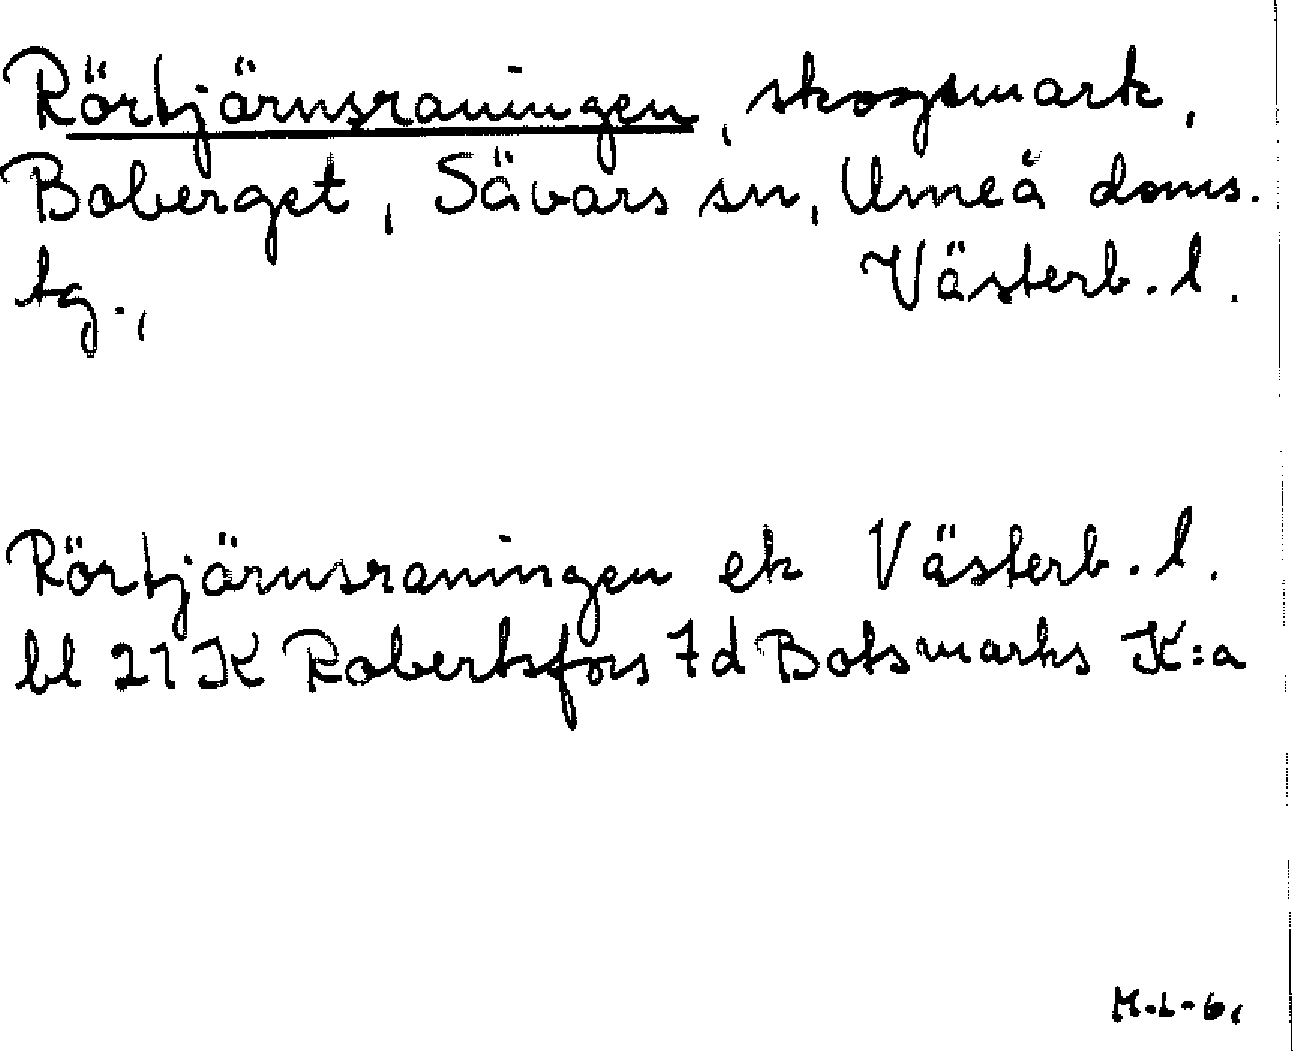 Rörtjärnsraningen, skogsmark,
Boberget, Sävars sn, Umeå doms.
tg., Västerb. l.
Rörtjärnsraningen ek Västerb. l.
bl 21 K Robertsfors 7d Botsmarks K:a